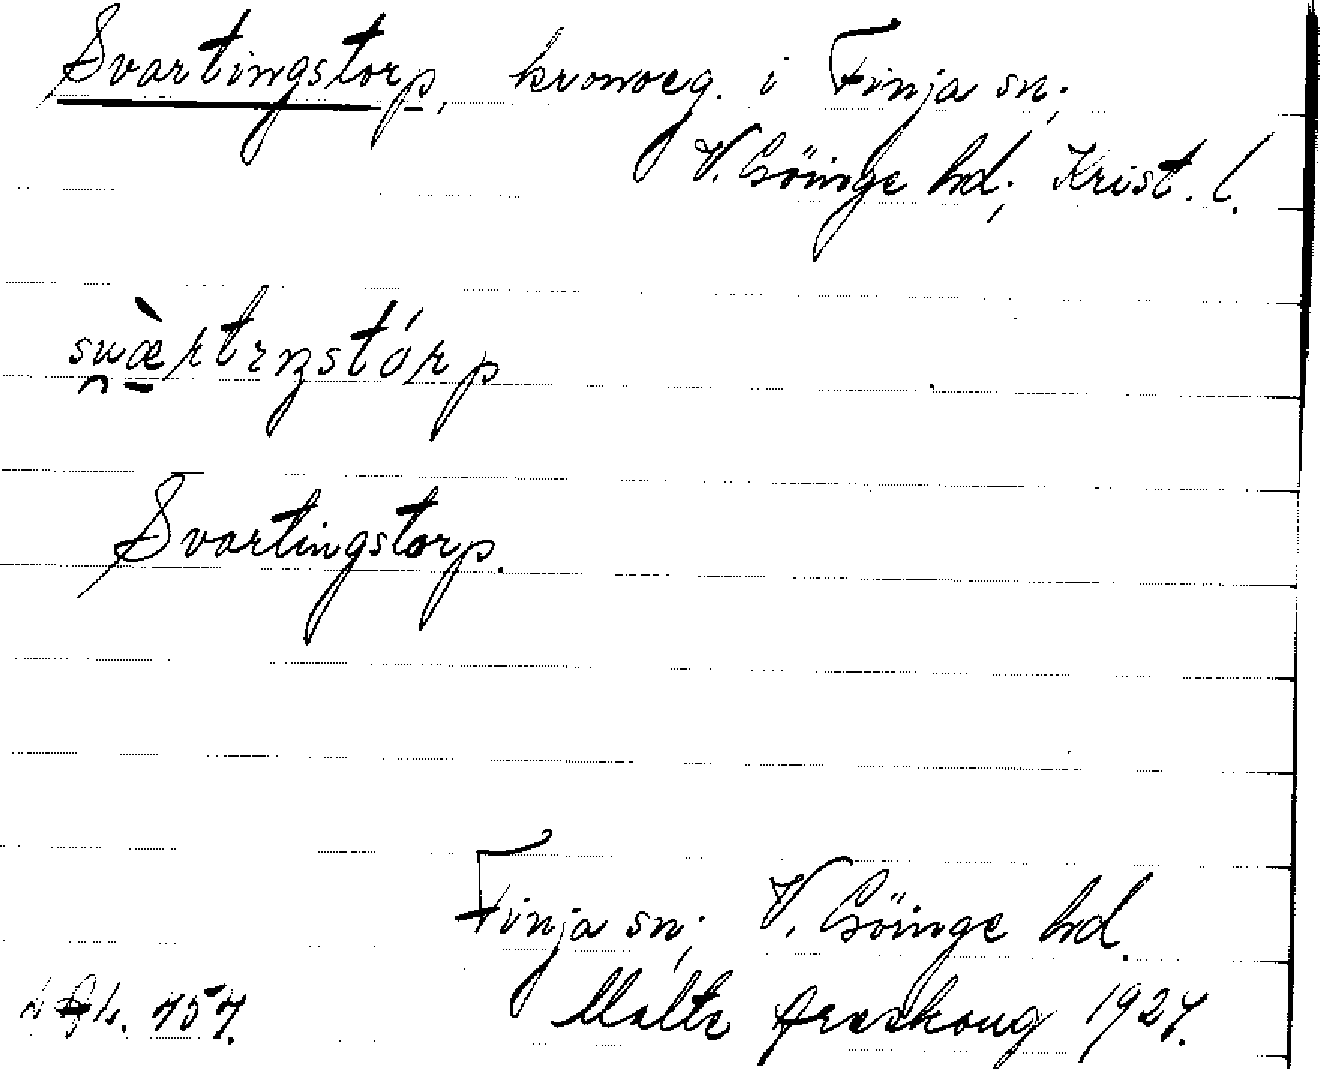 Svartingstorp, kronoeg. i Finja sn;
V. Göinge hd; Krist. l.
Svartingstorp.
Finja sn; V. Göinge hd.
Malte Areskoug 1927.
757.